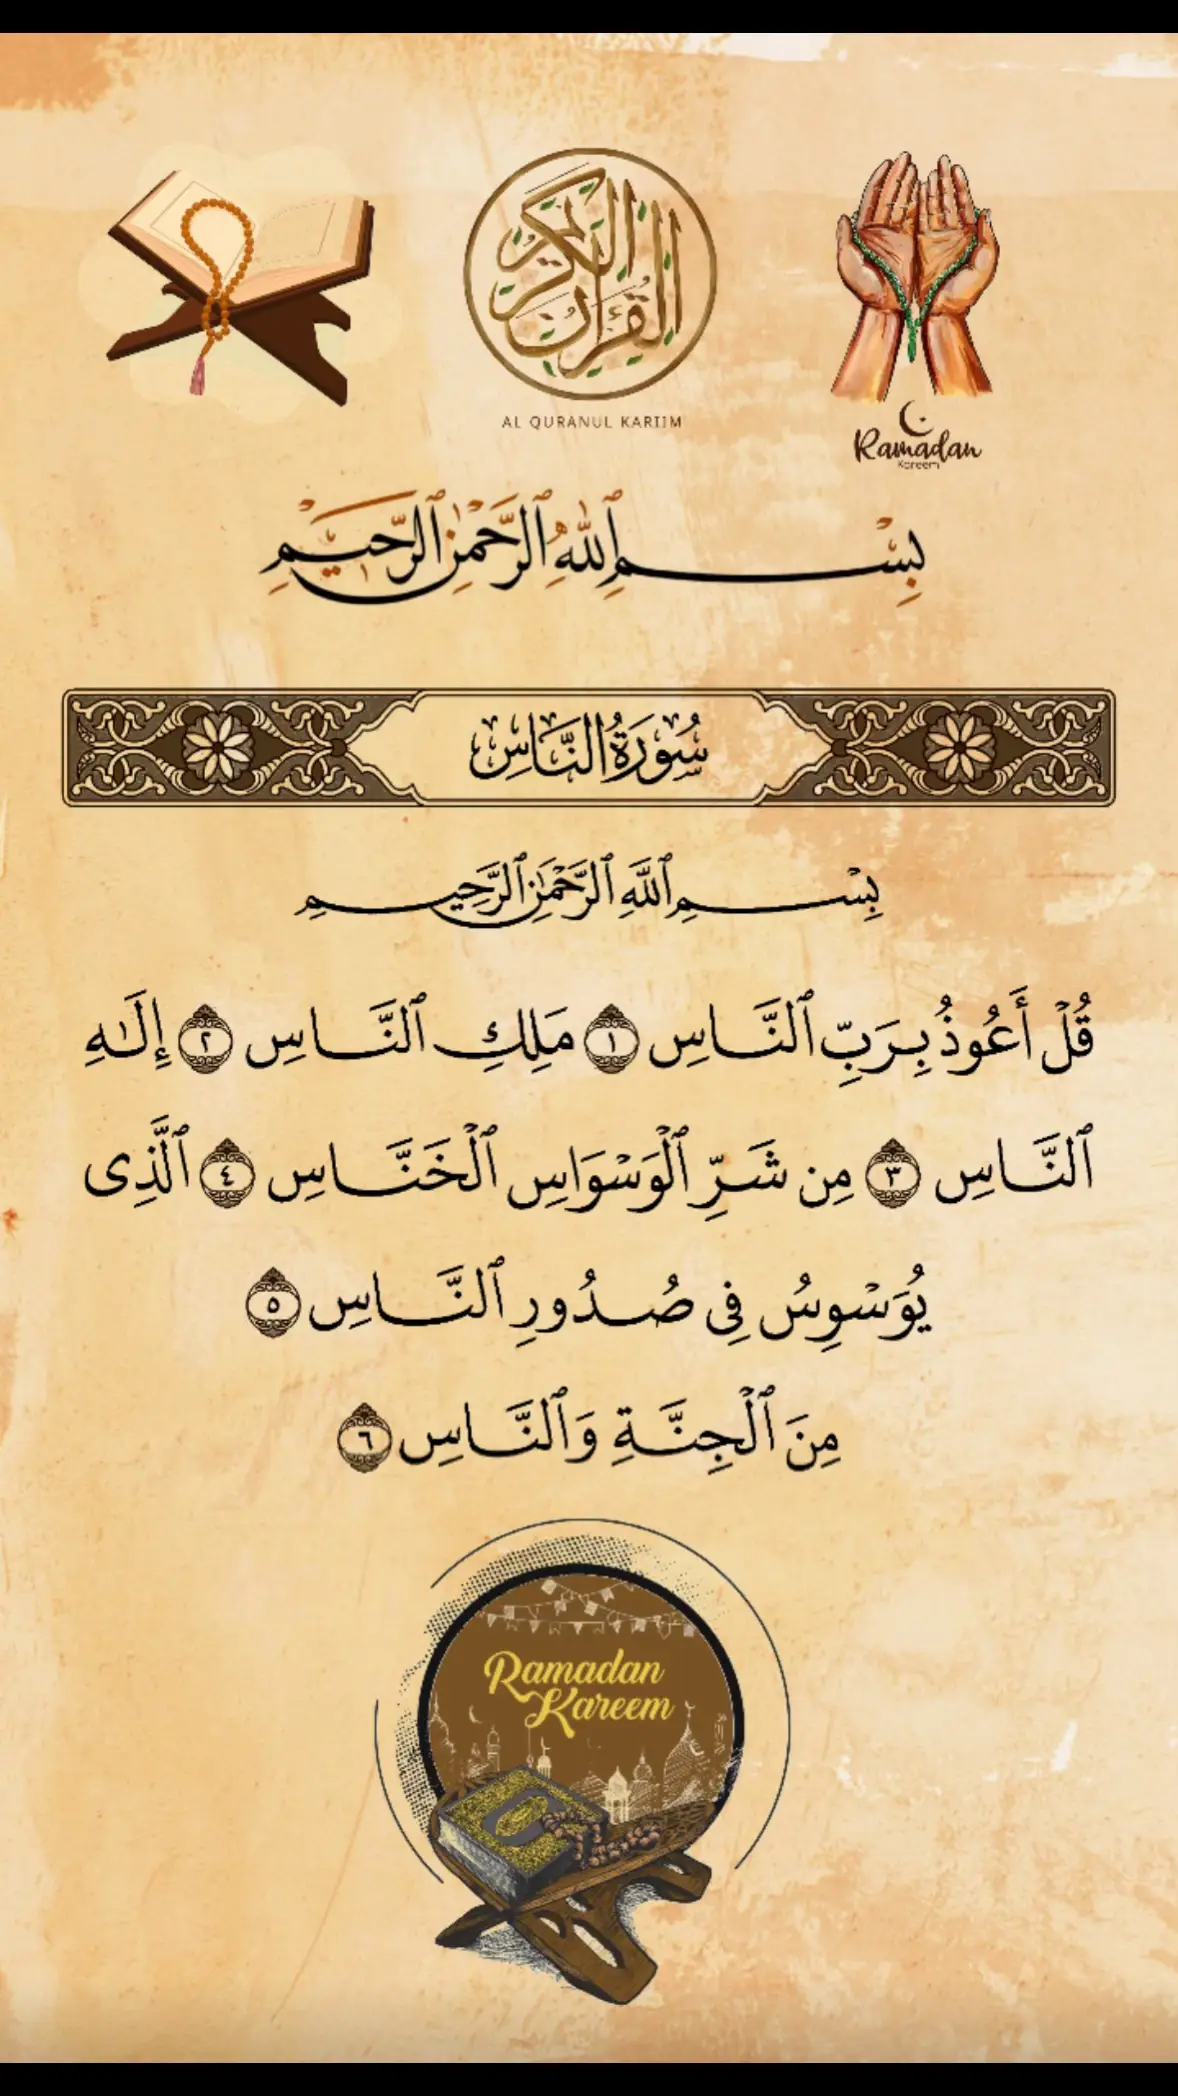 القرآن الكريم
AL QURANUL KARIIM
Ramadan
Kareem
بِسْمِ ٱللهِ ٱلرَّحْمٰنِ ٱلرَّحِيمِ
سُورَةُ النَّاسِ
بِسْمِ ٱللَّهِ ٱلرَّحْمَٰنِ ٱلرَّحِيمِ
قُلْ أَعُوذُ بِرَبِّ ٱلنَّاسِ ١ مَلِكِ ٱلنَّاسِ ٢ إِلَٰهِ
ٱلنَّاسِ ٣ مِن شَرِّ ٱلْوَسْوَاسِ ٱلْخَنَّاسِ ٤ ٱلَّذِى
يُوَسْوِسُ فِى صُدُورِ ٱلنَّاسِ ٥
مِنَ ٱلْجِنَّةِ وَٱلنَّاسِ ٦
Ramadan
Kareem